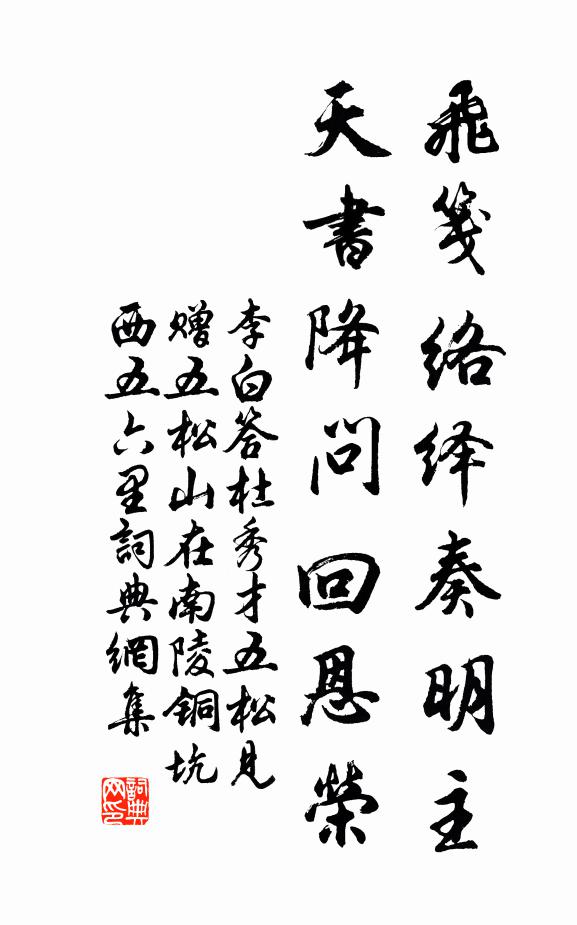 飛箋絡绎奏明主
天書降問回恩榮
李白答杜秀才五松見
赠五松山在南陵銅坑
西五六里詞典網集
詞典
网印